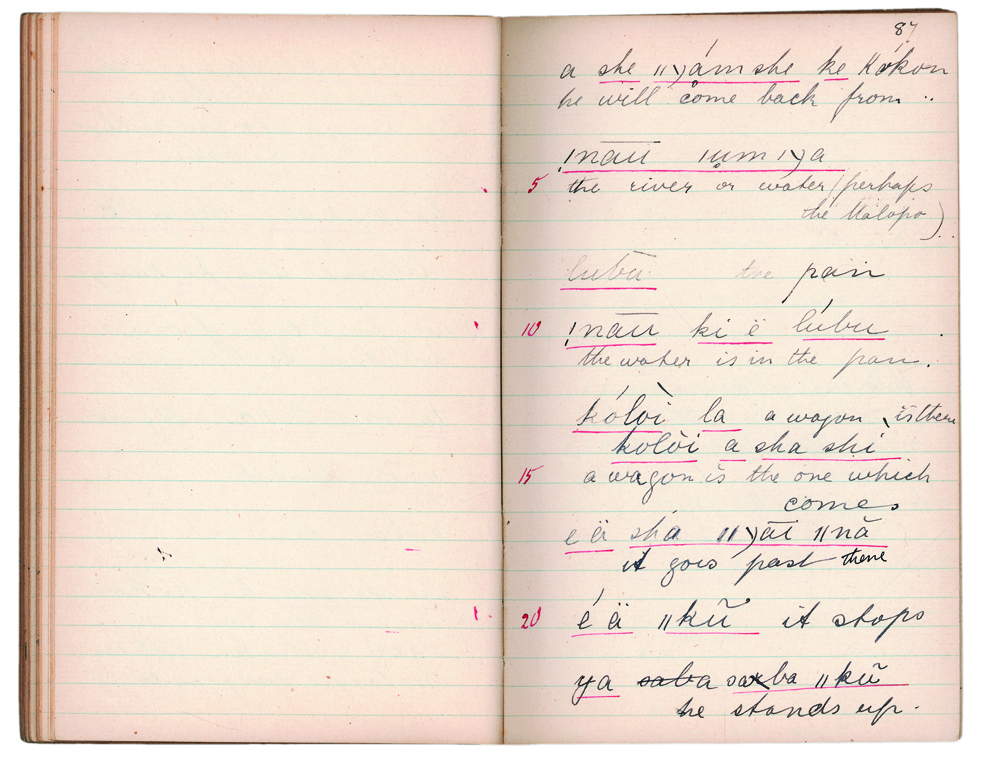 87
a she ǁɣám she ke Kókon
he will come back from ..
ǃnāū ǀum ǀɣa
5 the river or water (perhaps
the Malopo)
lubū the pan
10 ǃnāu ki ë lúbu
the water is in the pan.
kólòi la a wagon is there
kolòi a sha shi
15 a wagon is the one which
comes
e ä sha ǁɣāī ǁnā
it goes past there
20 é ä ǁkũ it stops
ya saba sarba ǁkũ
he stands up.